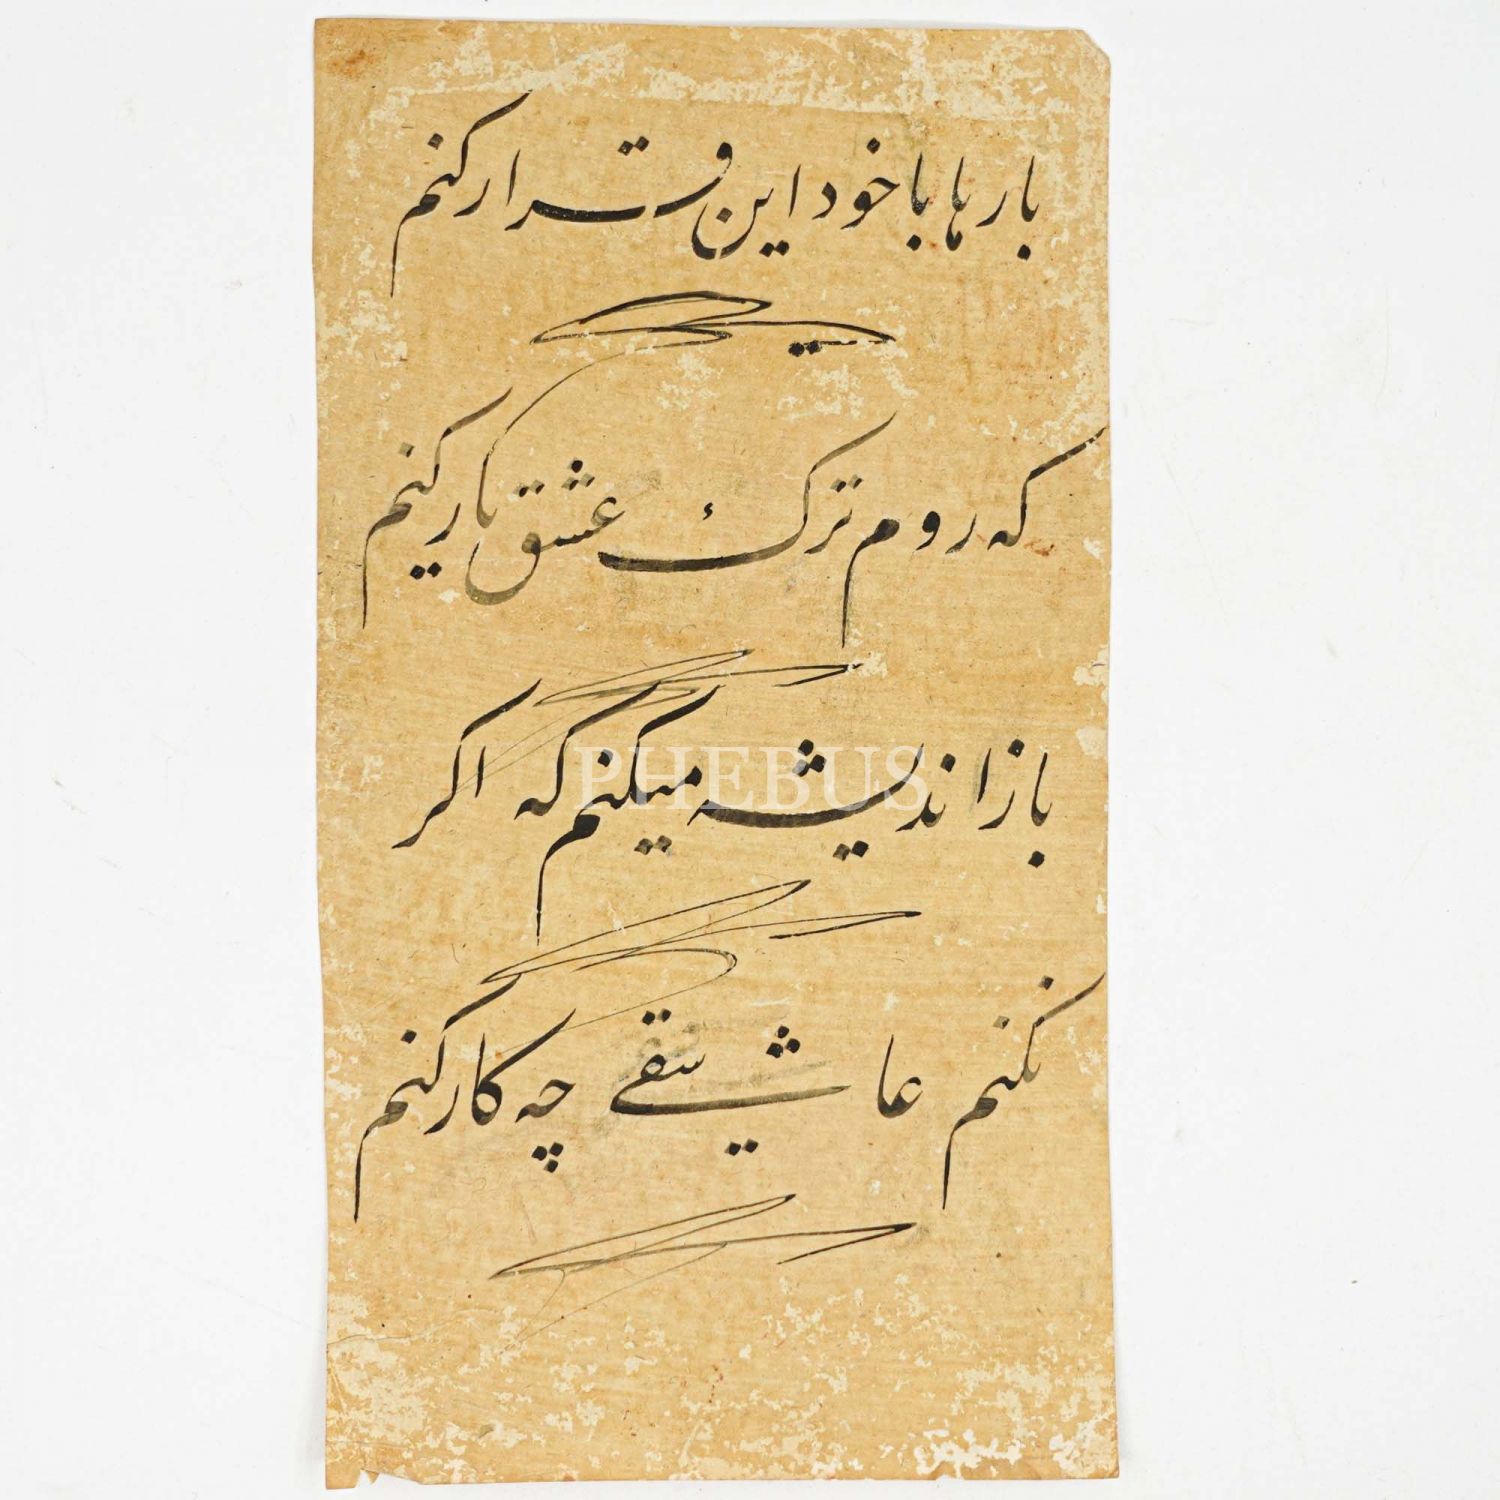 بارها با خود این قرار کنم
که روم ترک عشق یار کنم
باز اندیشه میکنم که اگر
نکنم عاشیقی چه کار کنم
PHEBUS